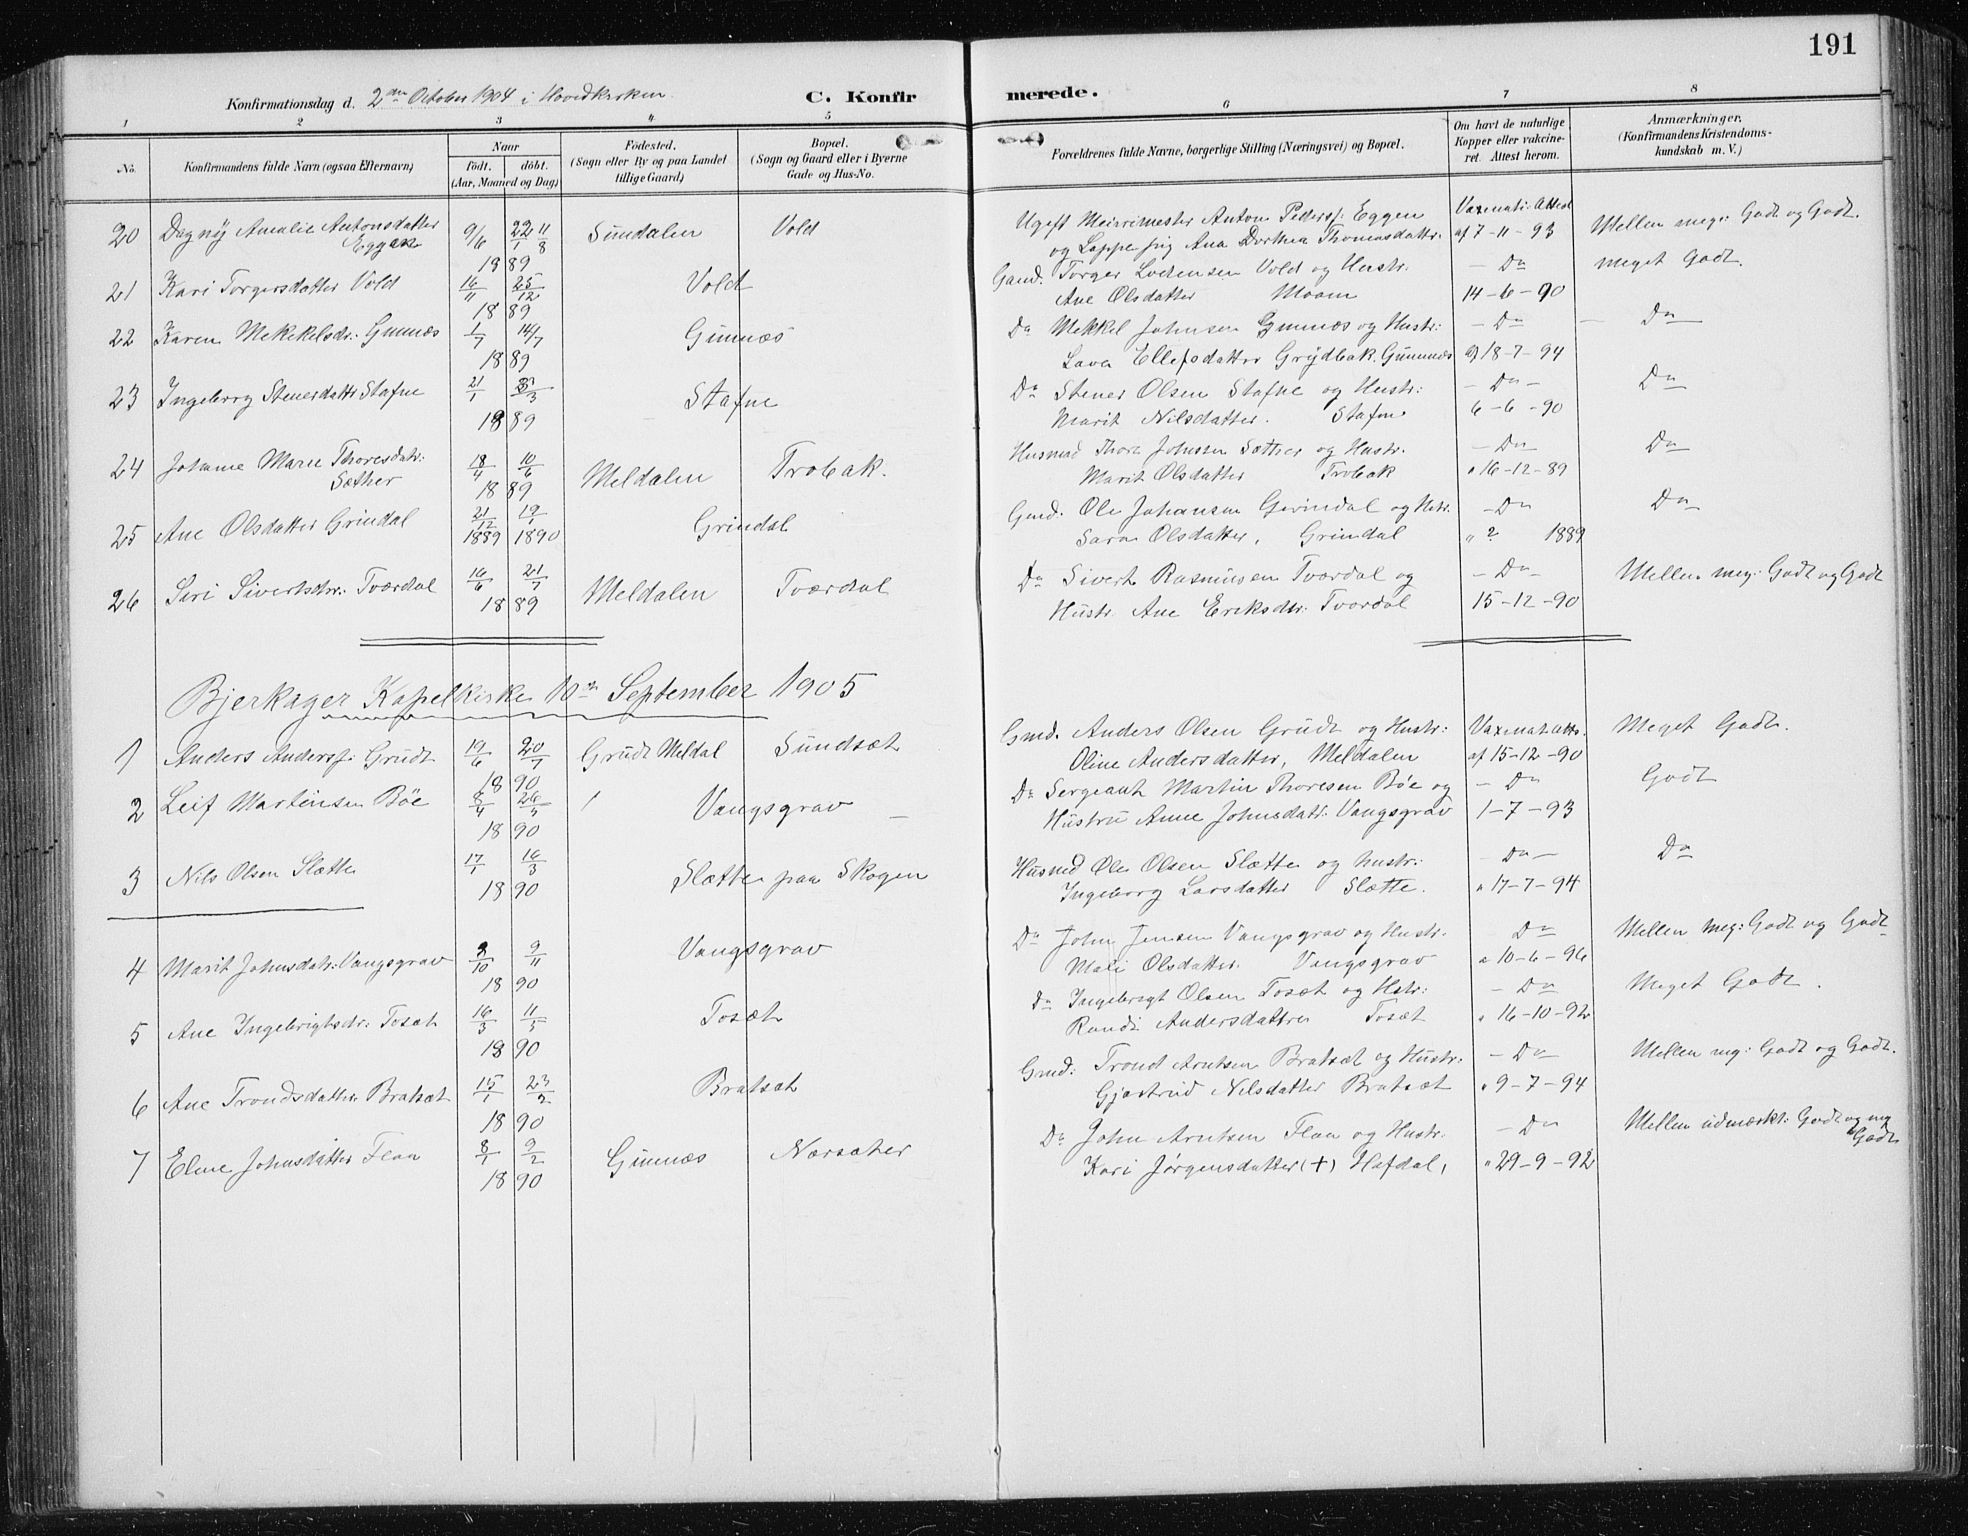 191
Konfirmationsdag d. 2den October 1904 i Hovedkirken C. Konfirmerede.
1 2 3 4 5 6 7 8
No. Konfirmandens fulde Navn (ogsaa Efternavn) Naar født. døbt. (Aar, Maaned og Dag) Fødested. (Sogn eller By og paa Landet tillige Gaard) Bopæl. (Sogn og Gaard eller i Byerne Gade og Hus-No. Forældrenes fulde Navne, borgerlige Stilling (Næringsvei) og Bopæl. Om havt de naturlige Kopper eller vakcineret. Attest herom. Anmærkninger. (Konfirmandens Kristendomskundskab m. V.)
20 Dagny Amalie Antonsdatter 9/6 Sundalen Vold Ugeft Meierimester Anton Peders. Eggen Vaxinati: Attest Mellem meg: Godt og Godt.
Eggen 1889 og Ane Dorthea Thomasdatter. af 7-11-93
21 Kari Torgersdatter Vold 16/11 25/12 Vold Gaard. Torger Vold og Hustr. - Do meget Godt.
1889 Ane Olsdatter Moam 14-6-90
22 Karen Mekkelsdr: Gunnæs 1/7 14/7 Gunnæs Do Mekkel Johnsen Gunnæs og Hustr: - Do - Do
1889 Ellefsdatter Grydbak. Gunnæs af 18-7-94
23 Ingeborg Stenersdattr Stafne 21/1 Stafne Do Stener Olsen Stafne og Hustr: - Do - Do
1889 Marit Nilsdatter. Stafne 6-6-90
24 Johanne Marie Thoresdatr: 18/4 10/6 Meldalen Trobak. Husmd Thore Johnsen Sæther og Hustr. - Do Do
Sæther 1889 Marit Olsdatter Trobak " 16-12-89
25 Ane Olsdatter Grindal 21/12 19/1 Grindal Gmd. Ole Johansen Grindal og Hstr. - Do Do
1889 1890 Sara Olsdatter, Grindal " ? 1889
26 Siri Sivertsdtr: Tværdal 16/6 21/7 Meldalen Tværdal Do Sivert Rasmusen Tværdal og - Do - Mellem meg: Godt og Godt
1889 Hustr. Ane Eriksdtr: Tvordal 15-12-90
Bjerkager Kapelkirke 10de September 1905
1 Anders Anderss: Grudt 19/6 20/7 Grudt Meldal Sundsæt Gmd. Anders Olsen Grudt og Hustr: Vaxinat. atts. Meget Godt.
1890 Oline Andersdatter, Meldalen af 15-12-90
2 Leif Martinsen Bøe 8/4 Vangsgrav Do Sergeant Martin Thoresen Bøe og - Do Godt
1890 Hustru Anne Johnsdatr: Vangsgrav 1-7-93
3 Nils Olsen Slætte 17/1 16/3 Slætte paa Skogen Husmd Ole Olsen Slætte og hustr: - Do - Do
1890 Ingeborg Larsdatter Slætte. " 17-7-94
4 Marit Johnsdatr: Vangsgrav 9/11 Vangsgrav Do John Jensen Vangsgrav og Hustr. Do Mellem meg: Godt og Godt
1890 Mali Olsdatter. Vangsgrav " 10-6-96
5 Ane Ingebrigtsdr: Tosæt 16/3 11/5 Tosæt Do Ingebrigt Olsen Tosæt og Hstr: - Do Meget Godt.
1890 Randi Andersdatter Tosæt " 16-10-92
6 Ane Trondsdatter Bratsæt 15/1 Bratsæt Gmd: Trond Arntsen Bratsæt og Hustr. - Do Mellem mg: Godt og Godt.
1890 Gjertrud Nilsdatter Bratsæt " 9-7-94
7 Eline Johnsdatter Flaa 8/1 9/2 Gunnæs Næsæter Do John Arntsen Flaa og Hustr. - Do Mellem udmærkt: Godt og mg
1890 Kari Jørgensdatter (+) Hafdal, " 29-9-92 Godt